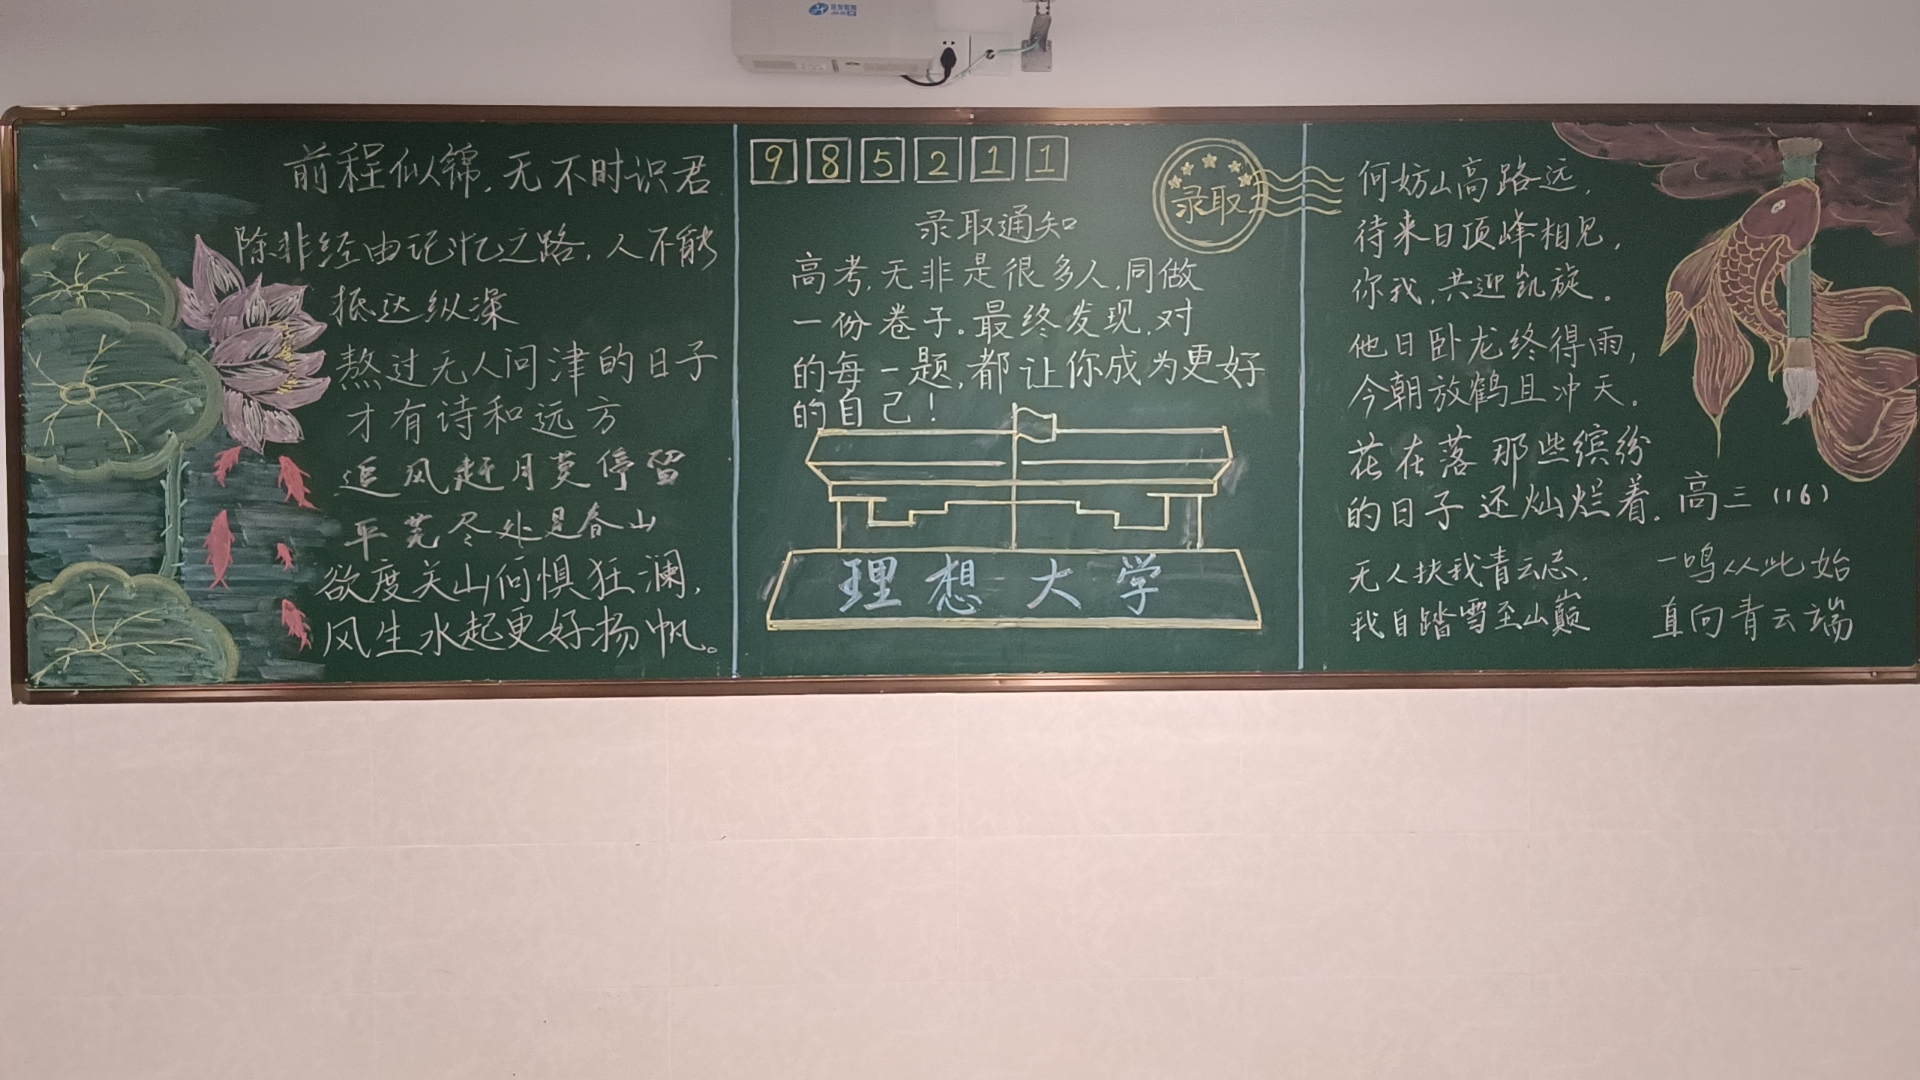 前程似锦,无不时识君
除非经由记忆之路,人不能
抵达纵深
熬过无人问津的日子
才有诗和远方
追风赶月莫停留
平芜尽处是春山
欲度关山何惧狂澜,
风生水起更好扬帆。
985211
录取
录取通知
高考,无非是很多人,同做
一份卷子。最终发现,对
的每一题,都让你成为更好
的自己!
理想大学
何妨山高路远,
待来日顶峰相见,
你我,共迎凯旋。
他日卧龙终得雨,
今朝放鹤且冲天。
花在落 那些缤纷
的日子 还灿烂着. 高三(16)
无人扶我青云志,
我自踏雪至山巅
一鸣从此始
直向青云端